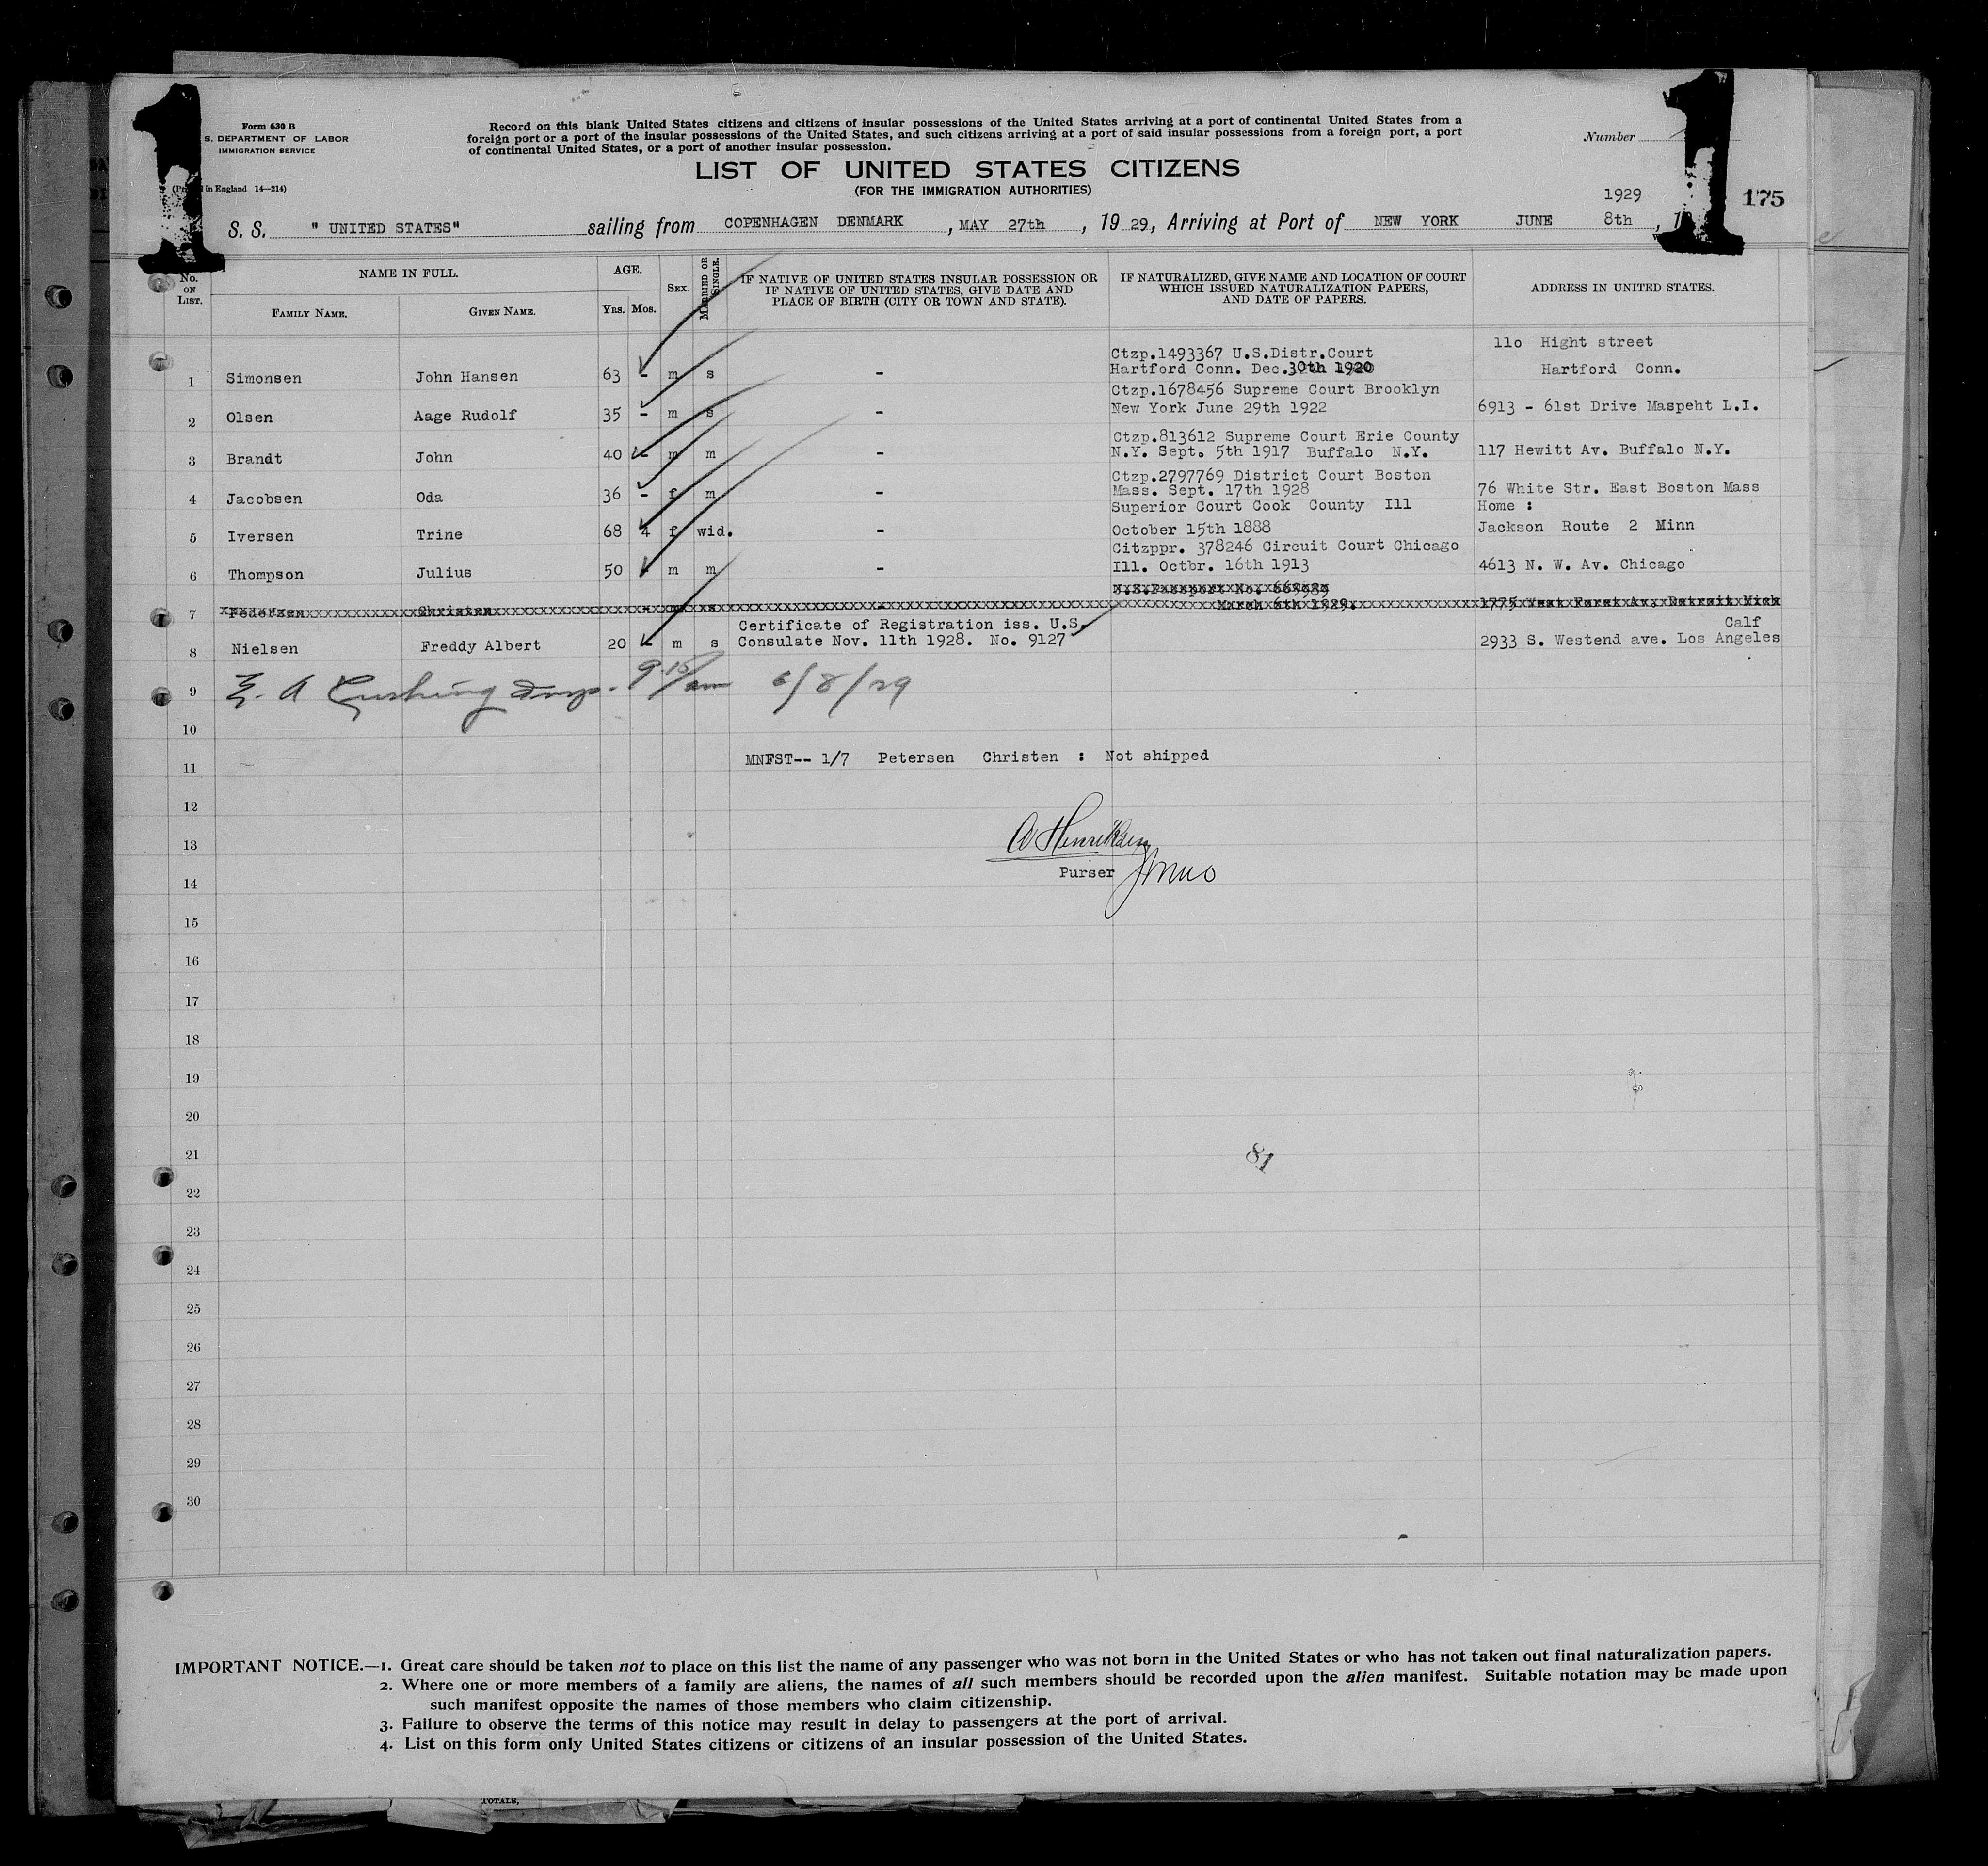 1
1
Form 630 B
S. DEPARTMENT OF LABOR
IMMIGRATION SERVICE
in England 14—214)
Record on this blank United States citizens and citizens of insular possessions of the United States arriving at a port of continental United States from a
foreign port or a port of the insular possessions of the United States, and such citizens arriving at a port of said insular possessions from a foreign port, a port
of continental United States, or a port of another insular possession.
Number
LIST OF UNITED STATES CITIZENS
(FOR THE IMMIGRATION AUTHORITIES)
1929
175
S. S. " UNITED STATES" sailing from COPENHAGEN DENMARK , MAY 27th , 19 29, Arriving at Port of NEW YORK JUNE 8th , 1
No. ON LIST. NAME IN FULL. AGE. SEX. MARRIED OR SINGLE. IF NATIVE OF UNITED STATES INSULAR POSSESSION OR IF NATIVE OF UNITED STATES, GIVE DATE AND PLACE OF BIRTH (CITY OR TOWN AND STATE). IF NATURALIZED, GIVE NAME AND LOCATION OF COURT WHICH ISSUED NATURALIZATION PAPERS, AND DATE OF PAPERS. ADDRESS IN UNITED STATES.
FAMILY NAME. GIVEN NAME. YRS. MOS.
Ctzp.1493367 U.S.Distr.Court 11o Hight street
1 Simonsen John Hansen 63 - m s - Hartford Conn. Dec.30th 1920 Hartford Conn.
Ctzp.1678456 Supreme Court Brooklyn
2 Olsen Aage Rudolf 35 - m s - New York June 29th 1922 6913 - 61st Drive Maspeht L.I.
Ctzp.813612 Supreme Court Erie County
3 Brandt John 40 - m m - N.Y. Sept. 5th 1917 Buffalo N.Y. 117 Hewitt Av. Buffalo N.Y.
Ctzp.2797769 District Court Boston
4 Jacobsen Oda 36 - f m - Mass. Sept. 17th 1928 76 White Str. East Boston Mass
Superior Court Cook County Ill Home :
5 Iversen Trine 68 4 f wid. - October 15th 1888 Jackson Route 2 Minn
Citzppr. 378246 Circuit Court Chicago
6 Thompson Julius 50 - m m - Ill. Octbr. 16th 1913 4613 N. W. Av. Chicago
U.S.Passport No.
7 Christen - m s - March 6th 1929. 1775 West Av. Detroit Mich
Certificate of Registration iss. U.S. Calf
8 Nielsen Freddy Albert 20 - m s Consulate Nov. 11th 1928. No. 9127 2933 S. Westend ave. Los Angeles
9 A Cushing Insp. 9.15/am 6/8/29
10
MNFST-- 1/7 Petersen Christen : Not shipped
11
12
13 Henriksen
Purser
14
15
16
17
18
19
20
21 81
22
23
24
25
26
27
28
29
30
IMPORTANT NOTICE.—1. Great care should be taken not to place on this list the name of any passenger who was not born in the United States or who has not taken out final naturalization papers.
2. Where one or more members of a family are aliens, the names of all such members should be recorded upon the alien manifest. Suitable notation may be made upon
such manifest opposite the names of those members who claim citizenship.
3. Failure to observe the terms of this notice may result in delay to passengers at the port of arrival.
4. List on this form only United States citizens or citizens of an insular possession of the United States.
TOTALS,